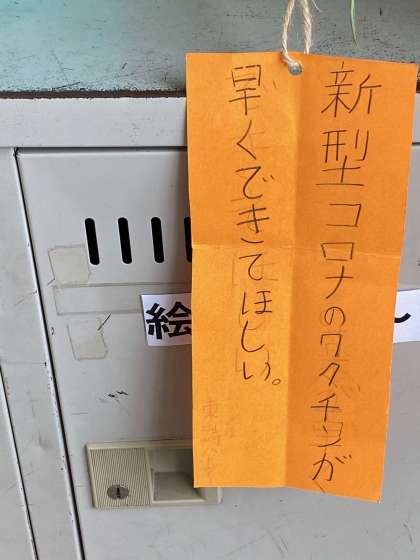 新型コロナのワクチンが
早くできてほしい。
絵